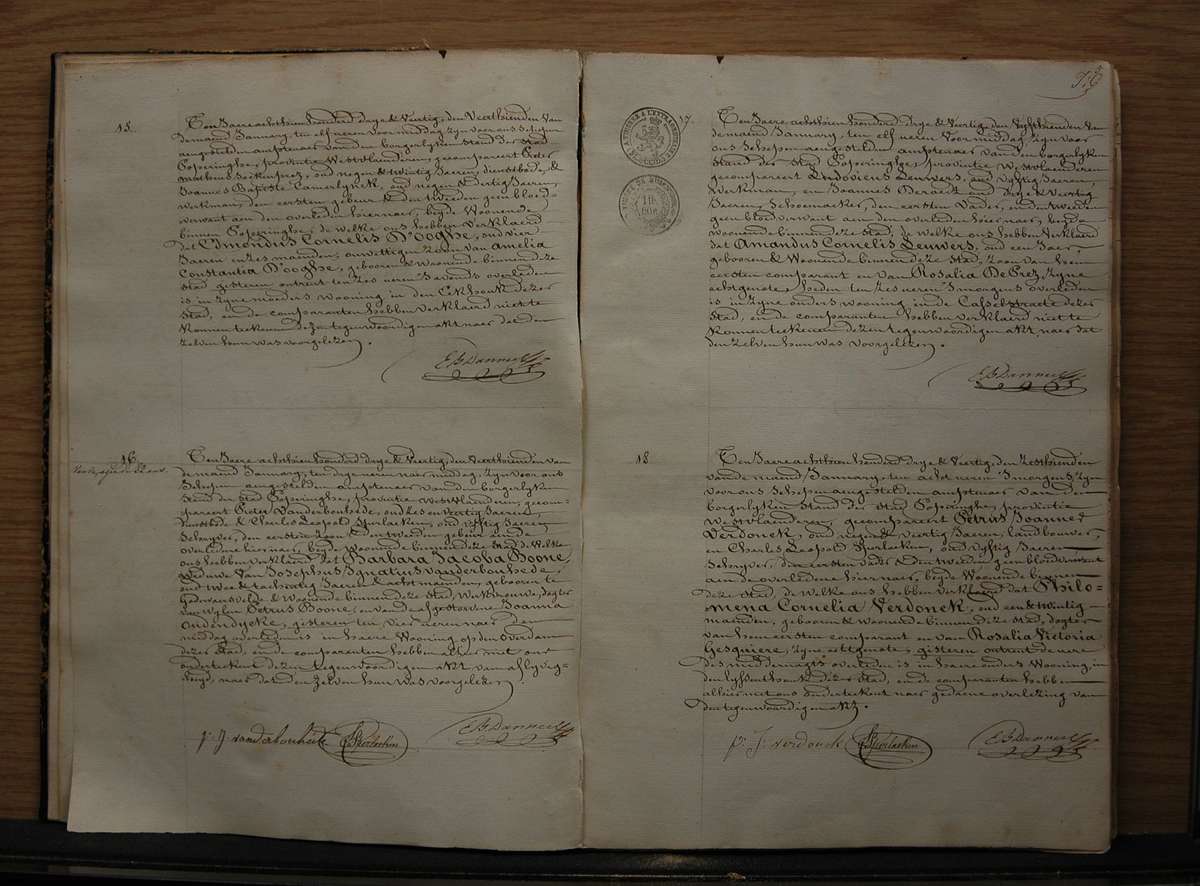 15.
Ten Jaere achthien honderd drye & Veertig, den Veerthienden van
de maend January, ten elf uren voor middag zyn voor ons Schepen
aengestelden amptenaer van den borgerlyken Stand der Stad
Poperinghe, provintie Westvlanderen, gecompareert Pieter
oud negen & twintig Jaeren, dienstbode, &
Joannes Baptiste Camerlynck, oud negen & dertig Jaeren,
werkman, den eersten gebuer & den tweeden geen bloed-
verwant aen den overleden hiernaer, beyde Woonende
binnen Poperinghe; de welke ons hebben Verklaerd
dat Edmondus Cornelis D'ooghe, oud vier
Jaeren en zes maenden, onwettigen zoon van Amelia
Constantia D'ooghe, gebooren & Woonende binnen deze
Stad, gisteren ontrent ten zes uren 's avonds overleden
is in zyne moeders Wooning in den Ekhoek dezer
Stad, en de comparanten hebben Verklaerd niet te
konnen teekenen dezen tegenwoordigen akt naer dat den
zelven hun was voorgelezen.
E. B. Danneel
16.
Ten Jaere achthien honderd drye & Veertig, den Veerthienden van
de maend January, ten drye uren naer middag, zyn voor ons
Schepen aengestelden amptenaer van den borgerlyken
Stand der Stad Poperinghe, provintie Westvlanderen, gecom-
pareert Pieter Vanderbonhede, oud zes en veertig Jaeren,
dienstbode & Charles Leopold Spurlacken, oud vyftig Jaeren
Schryver, den eersten zoon & den tweeden gebuer aen de
overledene hiernaer, beyde Woonende binnen deze Stad, de Welke
ons hebben verklaerd dat Barbara Jacoba Boone,
Weduwe van Josephus Ignatius vanderbonhede,
oud twee & tachentig Jaeren & acht maenden, gebooren te
Godewaersvelde & Woonende binnen deze Stad, Werkvrouwe, dogter
van wylen Petrus Boone, en van de afgestorvene Joanna
Oudendycke, gisteren ten vier uren naer den
middag overleden is in haere Wooning op den overdam
dezer Stad, en de comparanten hebben alhier met ons
onderteekent dezen tegenwoordigen akt van aflyvig-
heyd, naer dat den zelven hun was voorgelezen.
p. J. vanderbonhede
Spurlacken
E. B. Danneel
17.
Ten Jaere achthien honderd drye & Veertig, den Vyfthienden van
de maend January, ten elf uren Voor middag, zyn voor
ons Schepen aengestelden amptenaer van den borgerlyken
Stand der Stad Poperinghe, provintie Westvlanderen
gecompareert Ludovicus Leuwers, oud vyftig Jaeren,
Werkman, en Joannes Deraedt oud drye & Veertig
Jaeren, Schoenmaeker, den eersten Vader, en den tweeden
geen bloedverwant aen den overleden hiernaer, beyde
woonende binnen deze Stad, de welke ons hebben verklaerd
dat Amandus Cornelis Leuwers, oud een Jaer
gebooren & Woonende binnen deze Stad, zoon van hem
eersten comparant en van Rosalia De Prez, zyne
echtgenote, heden ten zes uren 's morgens overleden
is in zyne ouders wooning in de Casselstraete dezer
Stad, en de comparanten hebben verklaerd niet te
konnen teekenen dezen tegenwoordigen akt naer dat
den zelven hun was voorgelezen.
E. B. Danneel
18
Ten Jaere achthien honderd drye & Veertig, den zesthienden
van de maend January, ten acht uren 's morgens, zyn
voor ons Schepen aengestelden amptenaer van den
borgerlyken Stand der Stad Poperinghe, provintie
Westvlanderen, gecompareert Petrus Joannes
Verdonck, oud negen & veertig Jaeren, landbouwer,
en Charles Leopold Spurlacken, oud vyftig Jaeren
Schryver, den eersten vader & den tweeden geen bloedverwant
aen de overledene hiernaer, beyde Woonende binnen
deze Stad, de welke ons hebben verklaerd dat Philo-
mena Cornelia Verdonck, oud een & twintig
maenden, gebooren & woonende binnen deze Stad, dogter
van hem eersten comparant en van Rosalia Victoria
Gesquiere, zyne echtgenote, gisteren ontrent de vier
des middernagts overleden is in haere ouders Wooning, in
dezer Stad, en de comparanten hebben
alhier met ons onderteekent naer gedaene overlezing van
den tegenwoordigen akt.
p. J. verdonck
Spurlacken
E. B. Danneel